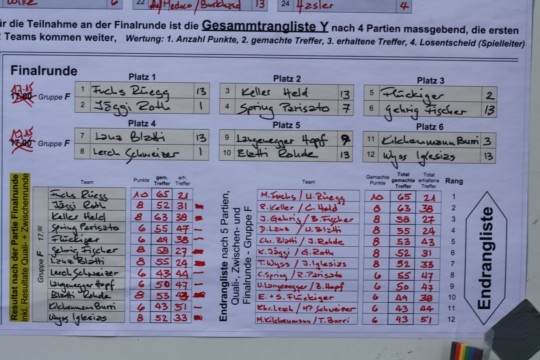 13 24 Hasler 4
für die Teilnahme an der Finalrunde ist die Gesamtrangliste Y nach 4 Partien massgebend, die ersten
Teams kommen weiter, Wertung: 1. Anzahl Punkte, 2. gemachte Treffer, 3. erhaltene Treffer, 4. Losentscheid (Spielleiter)
Finalrunde
Platz 1 Platz 2 Platz 3
Gruppe F
1 Fuchs Rüegg 13
2 Jäggi Roth 1
3 Keller Held 13
4 Spring Parisato 7
5 Flückiger 2
6 Gehrig Fischer 13
Platz 4 Platz 5 Platz 6
Gruppe F
7 Lanz Blatti 13
8 Lerch Schweizer 1
9 Langenegger Hopf 9
10 Blatti Rohde 13
11 Kilchenmann Burri 3
12 Wyss Iglesias 13
Resultat nach der Partie Finalrunde
inkl. Resultate Quali- + Zwischenrunde
Gruppe F
Team Punkte gem. Treffer erh. Treffer
Fuchs Rüegg 10 65 21
Jäggi Roth 8 52 31
Keller Held 8 63 38
Spring Parisato 6 55 47
Flückiger 6 49 38
Gehrig Fischer 8 53 27
Lanz Blatti 8 55 24
Lerch Schweizer 6 43 44
Langenegger Hopf 6 50 47
Blatti Rohde 8 53 43
Kilchenmann Burri 6 43 51
Wyss Iglesias 8 52 33
Endrangliste nach 5 Partien,
Quali-, Zwischen- und
Finalrunde - Gruppe F
Team Punkte Total gemachte Treffer Total erhaltene Treffer Rang
M. Fuchs / U. Rüegg 10 65 21 1
R. Keller / C. Held 8 63 38 2
J. Gehrig / B. Fischer 8 38 27 3
D. Lanz / U. Blatti 8 55 24 4
Chr. Blatti / J. Rohde 8 53 43 5
K. Jäggi / G. Roth 8 52 31 6
T. Wyss / J. Iglesias 8 52 33 7
C. Spring / R. Parisato 6 55 47 8
U. Langenegger / B. Hopf 6 50 47 9
E. + S. Flückiger 6 49 38 10
Chr. Lerch / Schweizer 6 43 44 11
M. Kilchenmann / T. Burri 6 43 51 12
Endrangliste